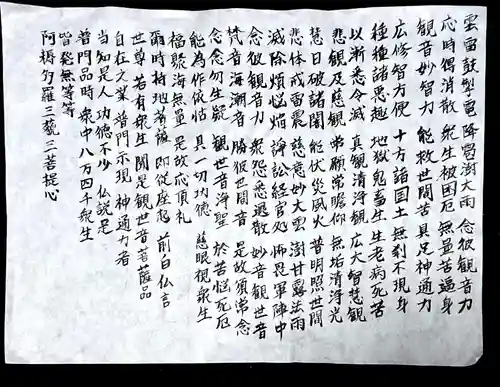 雲雷鼓掣電 降雹澍大雨 念彼觀音力
應時偶消散 衆生被困厄 無量苦逼身
觀音妙智力 能救世間苦 具足神通力
広修智方便 十方諸国土 無刹不現身
種種諸悪趣 地獄鬼畜生 生老病死苦
以漸悉令滅 真観清浄觀 広大智慧観
悲観及慈観 常願常瞻仰 無垢清浄光
慧日破諸闇 能伏災風火 普明照世間
悲体戒雷震 慈意妙大雲 澍甘露法雨
滅除煩悩焔 諍訟経官処 怖畏軍陣中
念彼観音力 衆怨悉退散 妙音観世音
梵音海潮音 勝彼世間音 是故須常念
念念勿生疑 観世音浄聖 於苦悩死厄
能為作依怙 具一切功徳 慈眼視衆生
福聚海無量 是故応頂礼
爾時持地菩薩 即従座起 前白仏言
世尊 若有衆生 聞是観世音菩薩品
自在之業 普門示現 神通力者
当知是人 功徳不少 仏説是
普門品時 衆中八万四千衆生
皆発無等等
阿耨多羅三藐三菩提心